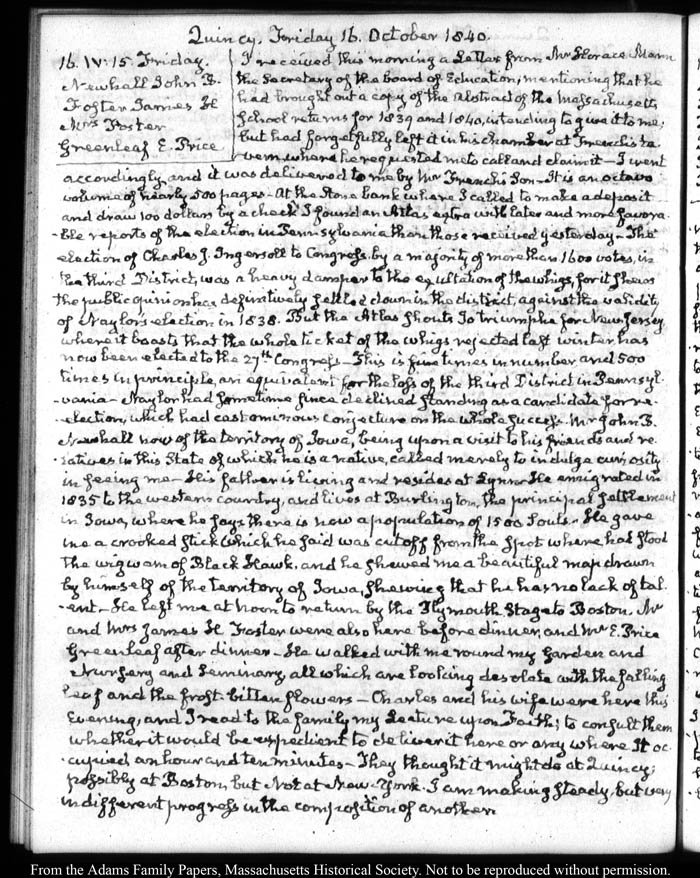 Quincy. Friday 16. October 1840.
16. IV: 15. Friday.
Newhall John B.
Foster James H
Mrs Foster
Greenleaf E. Price
I received this morning a Letter from Mr Horace Mann
the Secretary of the board of Education, mentioning that he
had brought out a copy of the Abstract of the Massachusetts
School returns for 1839 and 1840, intending to give it to me;
but had forgetfully left it in his chamber at French's ta
vern, where he requested me to call and claim it — I went
accordingly, and it was delivered to me by Mr French's Son — It is an octavo
volume of nearly 500 pages — At the Stone bank where I called to make a deposit
and draw 100 dollars by a check I found an Atlas extra with later and more favora
-ble reports of the election in Pennsylvania than those received yesterday — The
election of Charles J. Ingersoll to Congress, by a majority of more than 1600 votes, in
the third District, was a heavy damper to the exultation of the whigs, for it shews
the public opinion has definitively settled down in the district, against the validity
of Naylor's election in 1838. But the Atlas shouts Io triumphe for New Jersey
where it boasts that the whole ticket of the whigs rejected last winter has
now been elected to the 27th Congress — This is five times in number and 500
times in principle, an equivalent for the loss of the third District in Pennsyl
-vania — Naylor had sometime since declined standing as a candidate for re-
-election, which had cast ominous conjecture on the whole success. Mr John B.
Newhall now of the territory of Iowa, being upon a visit to his friends and re
-latives in this State of which he is a native, called merely to indulge curiosity
in seeing me — His father is living and resides at Lynn — He emigrated in
1835 to the western country, and lives at Burlington, the principal settlement
in Iowa, where he says there is now a population of 1500 souls — He gave
me a crooked stick which he said was cut off from the spot where had stood
the wigwam of Black Hawk, and he shewed me a beautiful map drawn
by himself of the territory of Iowa, shewing that he has no lack of tal
-ent — He left me at noon to return by the Plymouth Stage to Boston. Mr
and Mrs James H. Foster were also here before dinner, and Mr E. Price
Greenleaf after dinner — He walked with me round my Garden and
Nursery and Seminary, all which are looking desolate with the falling
leaf and the frost-bitten flowers — Charles and his wife were here this
Evening, and I read to the family, my Lecture upon Faith; to consult them
whether it would be expedient to deliver it here or any where It oc
-cupied an hour and ten minutes — They thought it might do at Quincy;
possibly at Boston, but Not at New-York. I am making steady, but very
indifferent progress in the composition of another.
From the Adams Family Papers, Massachusetts Historical Society. Not to be reproduced without permission.